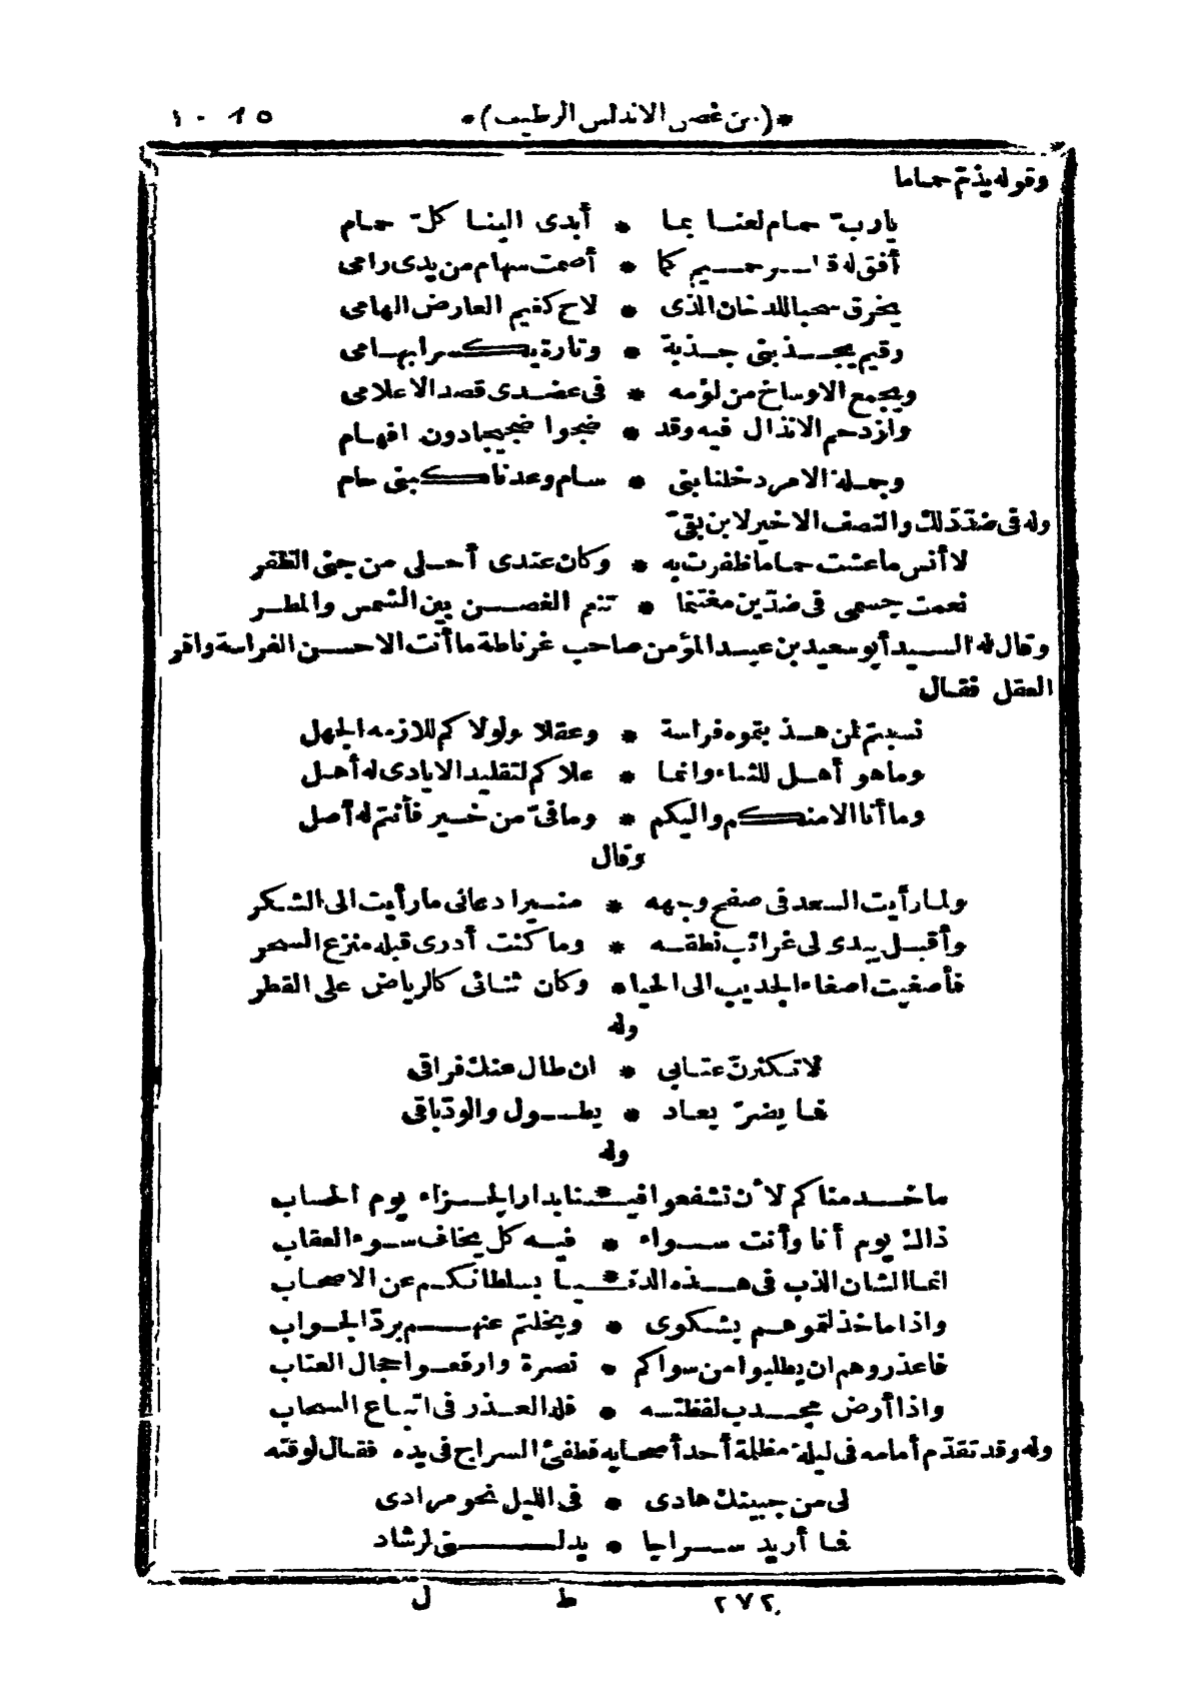 *(من غصن الاندلس الرطيب)* ١٠١٥
وقوله يذمّ حماما
يارب حمام لعنا بما * أبدى الينا كل حمام
أفق له قعر حميم كما * أصمت سهام من يدى رامى
يخرق سحبا للدخان الذى * لاح كغيم العارض الهامى
وقيم يجذبنى جذبة * وتارة يكسر ابهامى
ويجمع الاوساخ من لؤمه * فى عضدى قصد الاعلامى
وازدحم الانذال فيه وقد * ضجوا ضجيجا دون افهام
وجملة الامر دخلنا بنى * سام وعدنا كبنى حام
وله فى ضدّ ذلك والنصف الاخير لابن بقىّ
لا أنس ما عشت حماما ظفرت به * وكان عندى أحلى من جنى الظفر
نعمت جسمى فى ضدّين مغتنما * تنم الغصن بين الشمس والمطر
وقال له السيد أبو سعيد بن عبد المؤمن صاحب غرناطة ما أنت الا حسن الفراسة وافر
العقل فقال
نسبتم لمن هذبتموه فراسة * وعقلا ولولاكم للازمه الجهل
وما هو أهل للثناء وانما * علاكم لتقليد الايادى له أهل
وما أنا الا منكم واليكم * وما فىّ من خير فأنتم له أصل
وقال
ولما رأيت السعد فى صفح وجهه * منيرا دعانى ما رأيت الى الشكر
وأقبل يبدى لى غرائب نطقه * وما كنت أدرى قبله منزع السحر
فأصغيت اصغاء الجديب الى الحيا * وكان ثنائى كالرياض على القطر
وله
لا تكثرن عتابى * ان طال عنك فراقى
فما يضرّ بعاد * يطول والودّ باقى
وله
ما خدمناكم لأن تشفعوا فينا بدار الجزاء يوم الحساب
ذاك يوم أنا وأنت سواء * فيه كل يخاف سوء العقاب
انما الشان الذب فى هذه الدنيا بسلطانكم عن الاصحاب
واذا ما خذلتموهم بشكوى * وبخلتم عنهم بردّ الجواب
فاعذروهم ان يطلبوا من سواكم * نصرة وارفعوا حجال العتاب
واذا أرض مجدب لفظته * فله العذر فى اتباع السحاب
وله وقد تقدّم أمامه فى ليلة مظلمة أحد أصحابه فطفئ السراج فى يده فقال لوقته
لى من جبينك هادى * فى الليل نحو مرادى
فما أريد سراجا * يدلنى لرشاد
٢٧٢ ط ل